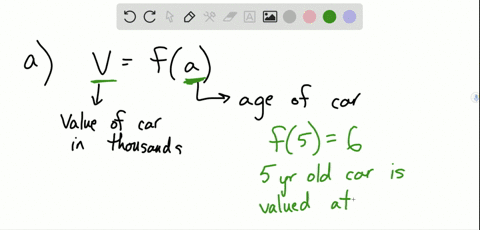 a) V = f(a)
Value of car
in thousands
age of car
f(5) = 6
5 yr old car is
valued at